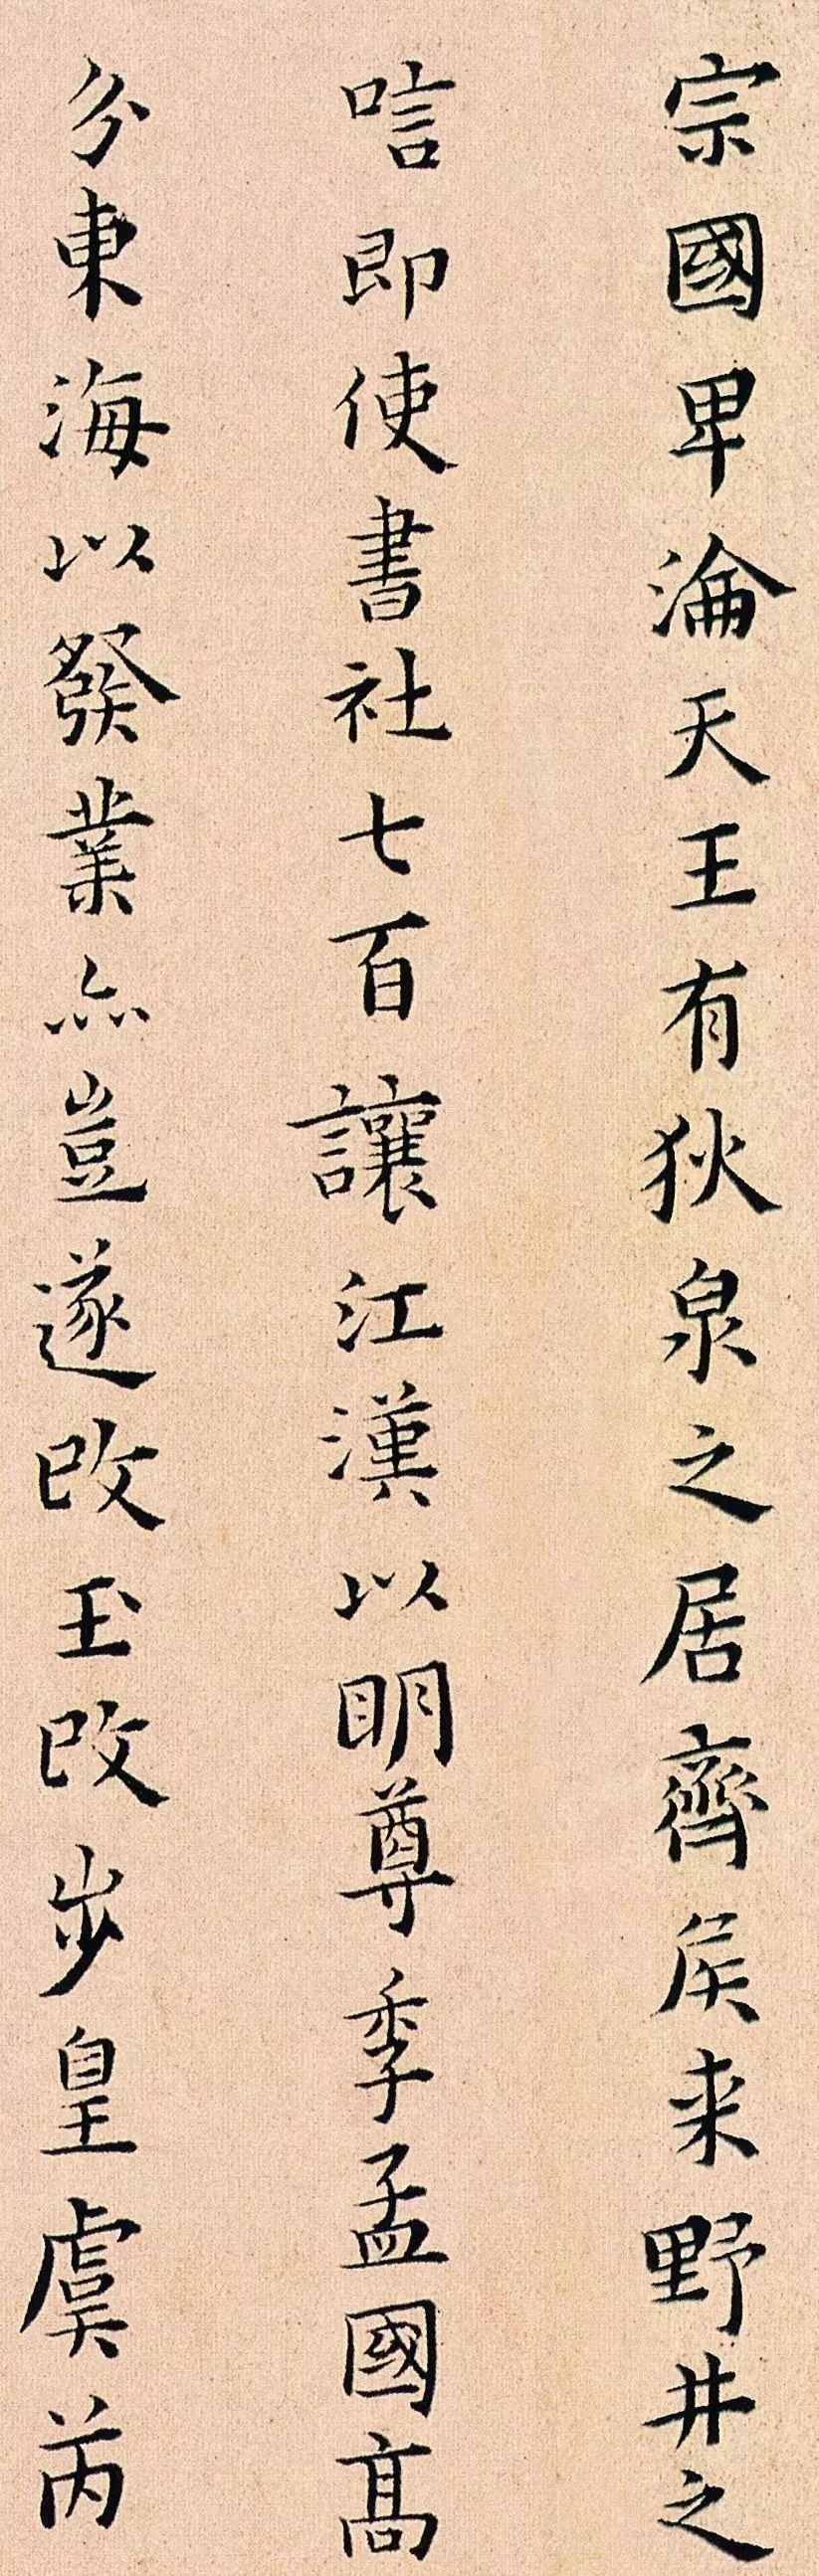 宗國卑淪天王有狄泉之居齊侯来野井之
唁即使書社七百讓江漢以明尊季孟國高
分東海以發業亦豈遂改玉改步皇虞芮